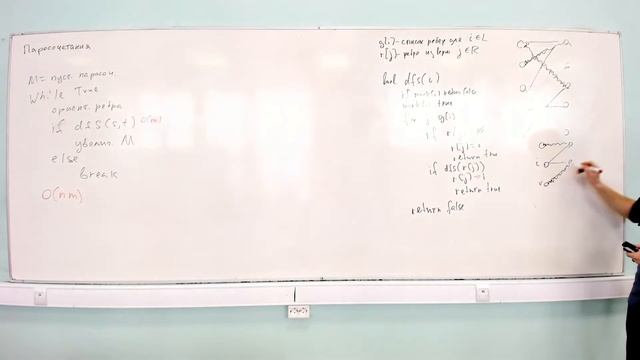 Паросочетания
M = пуст. паросоч.
While True
ориент. ребра
if dfs(s,t) O(m)
увелич. M
else
break
O(nm)
g[i]-список ребер для i∈L
r[j]-ребро из верш j∈R
bool dfs(i)
if mark[i] return false
mark[i] = true
for j g[i]
if r[j]
r[j]=i
return true
if dfs(r[j])
r[j]=i
return true
return false
i